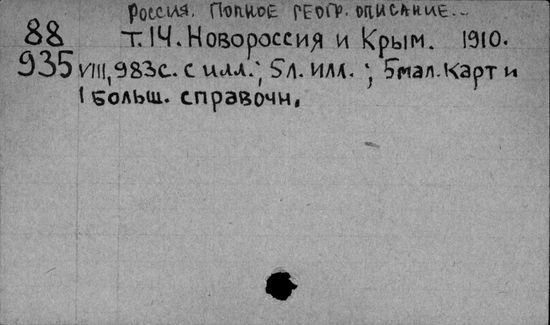 Россия. Полное геогр. описание...
88 т.14. Новороссия и Крым. 1910.
935 VIII, 983с. с илл.; 5л. илл. ; 5мал. карт и
1 больш. справочн.